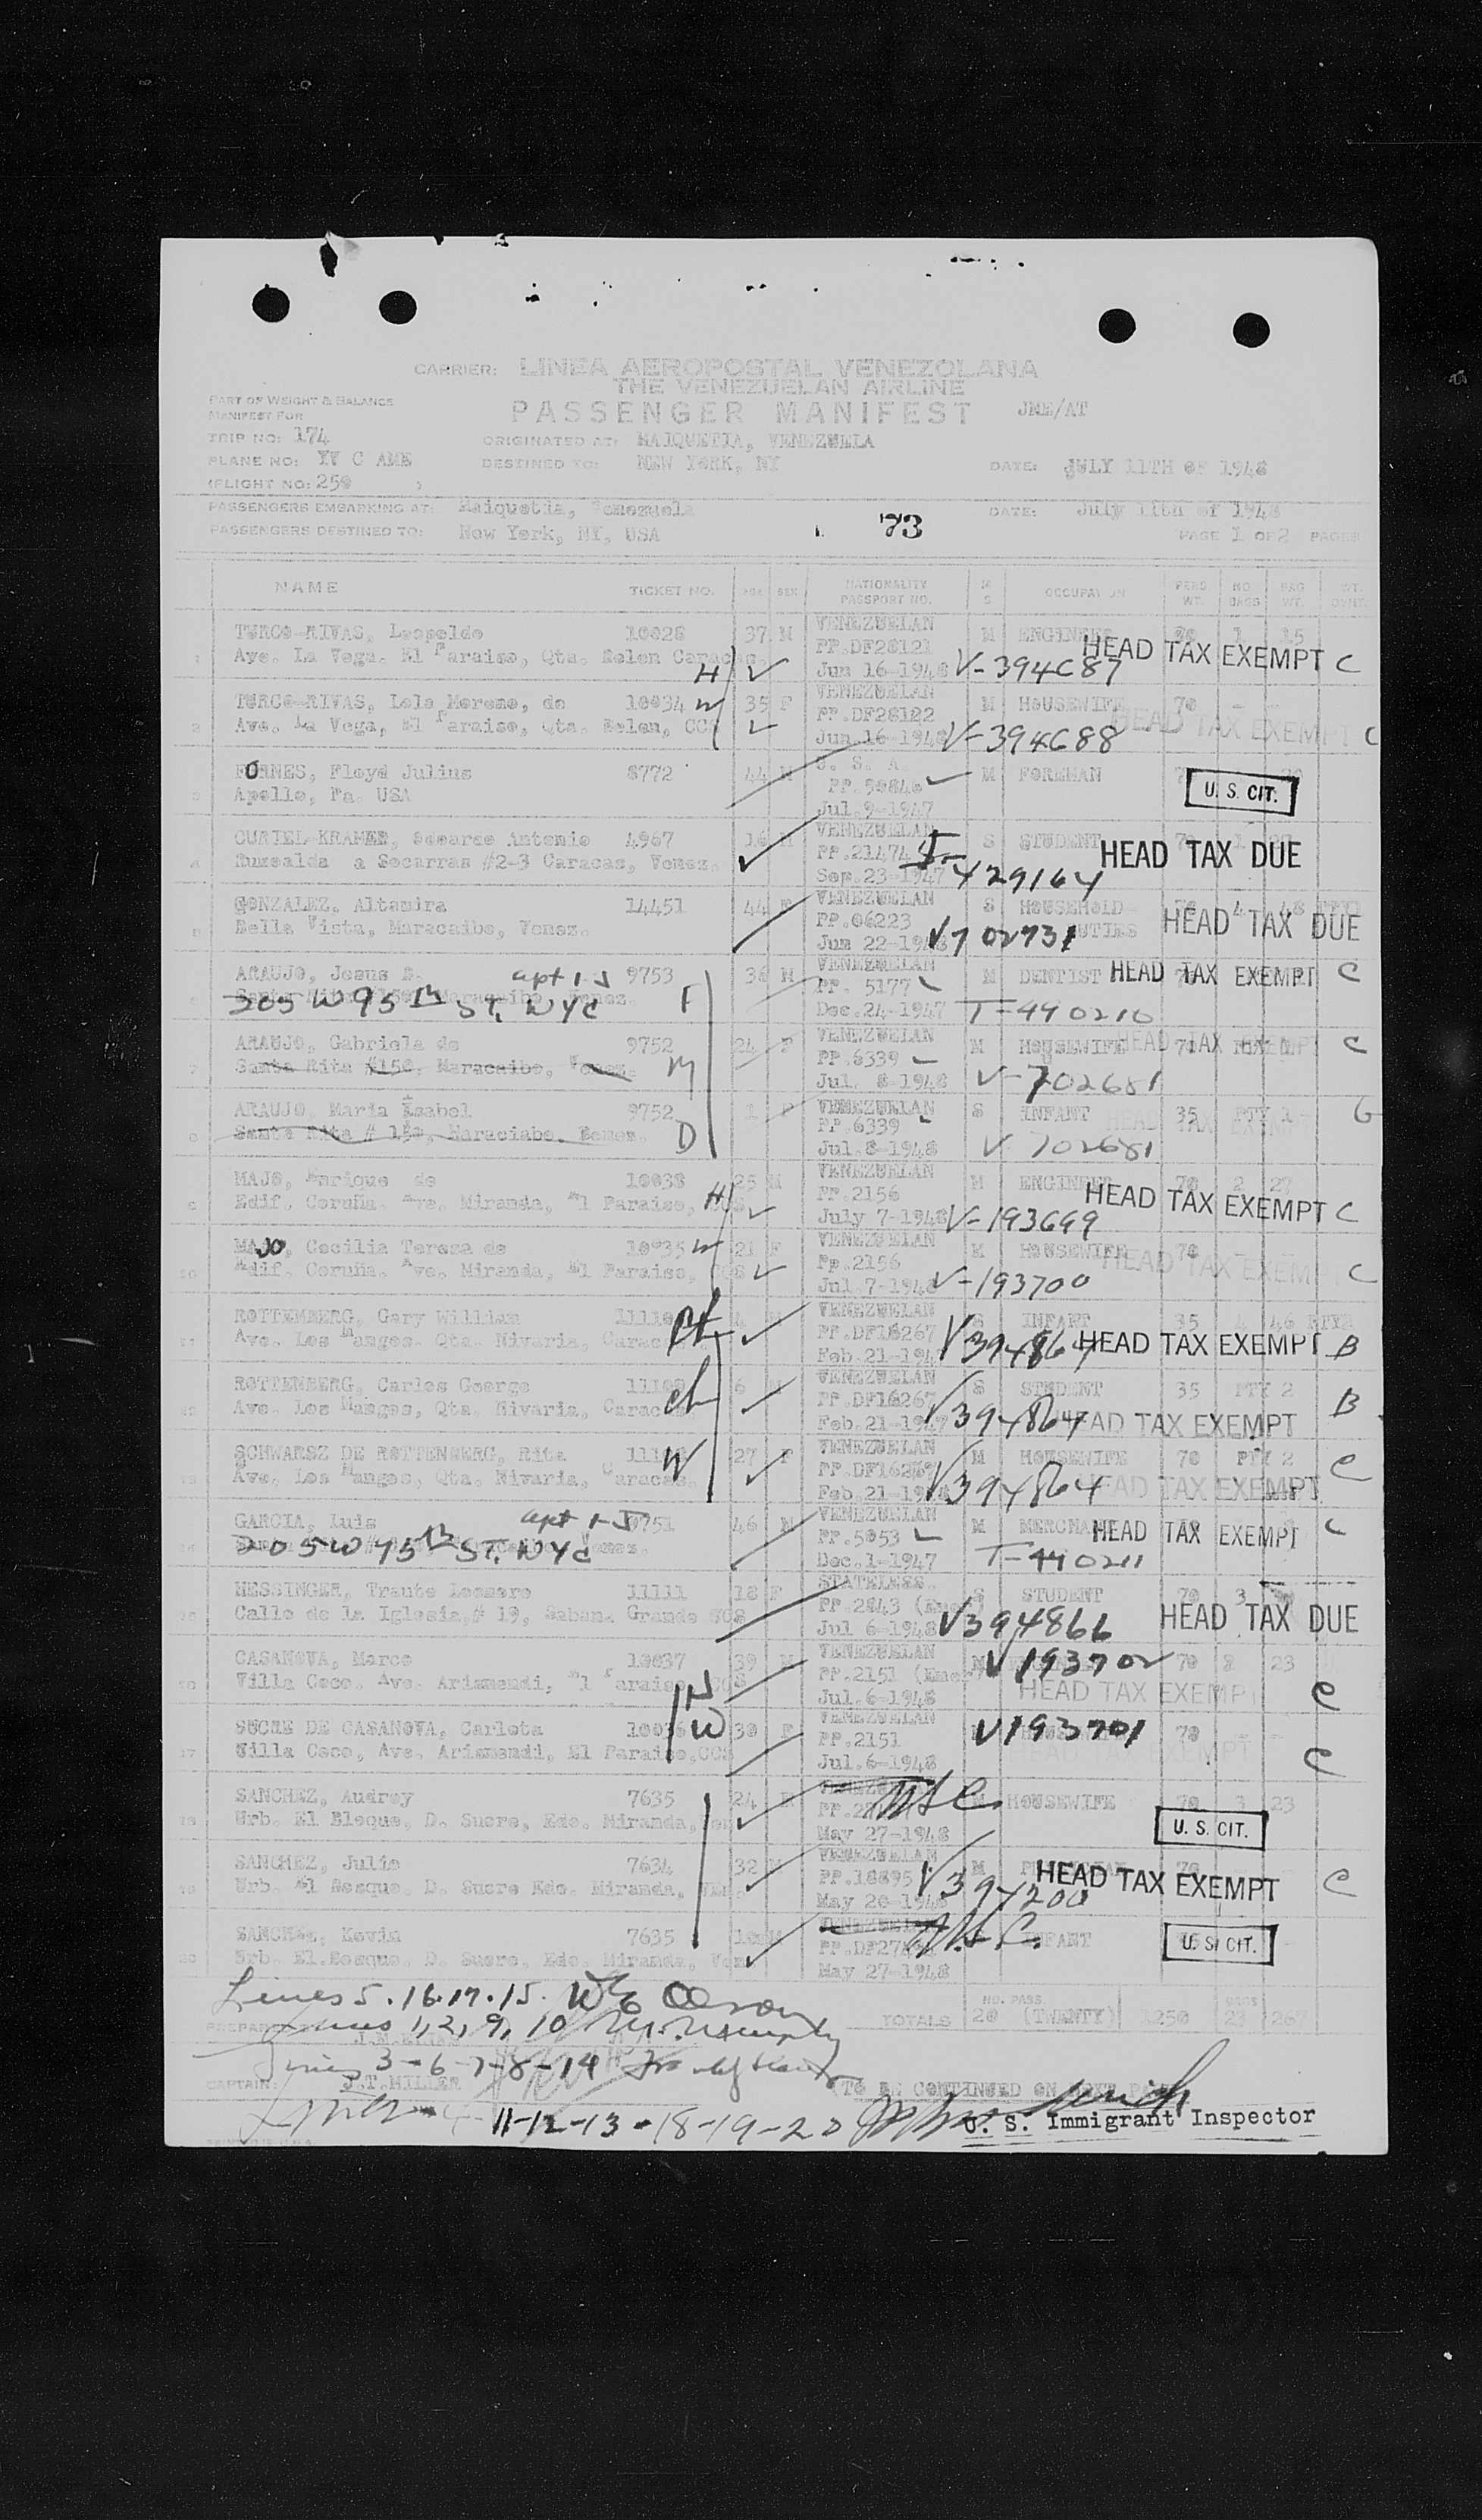 CARRIER: LINEA AEROPOSTAL VENEZOLANA
THE VENEZUELAN AIRLINE
PART OF WEIGHT & BALANCE
MANIFEST FOR
PASSENGER MANIFEST JME/AT
TRIP NO: 174 ORIGINATED AT: MAIQUETIA, VENEZUELA
PLANE NO: YV C AME DESTINED TO: NEW YORK, NY DATE: JULY 11TH OF 1948
(FLIGHT NO: 250 )
PASSENGERS EMBARKING AT: Maiquetia, Venezuela DATE: July 11th of 1948
PASSENGERS DESTINED TO: New York, NY, USA 73 PAGE 1 OF 2 PAGES
NAME TICKET NO. AGE SEX NATIONALITY PASSPORT NO. M S OCCUPATION PERS WT. NO. BAGS BAG WT.
1 TURCO-RIVAS, Leopoldo 10028 37 M VENEZUELAN M ENGINEER 1 15
Ave. La Vega. El Paraiso, Qta. Belen Caracas PP.DF28121 HEAD TAX EXEMPT C
H Jun 16-1948 V-394687
2 TURCO-RIVAS, Lola Moreno, de 10034 W 35 F VENEZUELAN M HOUSEWIFE 70
Ave. La Vega, El Paraiso, Qta. Belen, CCS PP.DF28122 HEAD TAX EXEMPT C
Jun.16-1948 V-394688
3 FORNES, Floyd Julius 8772 44 M U. S. A. M FOREMAN
Apollo, Pa. USA PP.50840 U. S. CIT.
Jul.9-1947
4 CURIEL-KRAMER, Antonio 4967 16 M VENEZUELAN S STUDENT 70
a Socarras #2-3 Caracas, Venez. PP.21474 HEAD TAX DUE
Sep.23-1947 429164
5 GONZALEZ, Altamira 14451 44 F VENEZUELAN S HOUSEHOLD DUTIES 4 48
Bella Vista, Maracaibo, Venez. PP.06223 HEAD TAX DUE
Jun 22-1948 V702731
6 ARAUJO, Jesus apt 1-J 9753 36 M VENEZUELAN M DENTIST HEAD TAX EXEMPT C
205 W 95th ST. NYC F PP. 5177
Dec.24-1947 T-440210
7 ARAUJO, Gabriela de 9752 24 F VENEZUELAN M HOUSEWIFE 70 HEAD TAX EXEMPT C
Santa Rita #150, Maracaibo, Venez. M PP.6339
Jul. 8-1948 V-702681
8 ARAUJO, Maria Isabel 9752 1 F VENEZUELAN S INFANT 35 PTY 1
Santa Rita # 150, Maraciabo. D PP.6339
Jul.8-1948 V 702681
9 MAJO, Enrique de 10038 25 M VENEZUELAN M ENGINEER 70 2 27
Edif. Coruña. Ave. Miranda, El Paraiso, CCS H PP.2156 HEAD TAX EXEMPT C
July 7-1948 V-193699
10 MAJO, Cecilia Teresa de 10035 W 21 F VENEZUELAN M HOUSEWIFE 70
Edif. Coruña. Ave. Miranda, El Paraiso, CCS Pp.2156 HEAD TAX EXEMPT C
Jul.7-1948 V-193700
11 ROTTEMBERG, Gary William VENEZUELAN S INFANT 35 4 46
Ave. Los Mangos. Qta. Nivaria, Caracas ch PP.DF16267 HEAD TAX EXEMPT B
Feb.21-1947 V394864
12 ROTTEMBERG, Carlos George 6 M VENEZUELAN S STUDENT 35 PTY 2
Ave. Los Mangos, Qta. Nivaria, Caracas ch PP.DF16267 B
Feb.21-1947 V394864 HEAD TAX EXEMPT
13 SCHWARSZ DE ROTTENBERG, Rita W 27 F VENEZUELAN M HOUSEWIFE 70 PTY 2
Ave. Los Mangos, Qta. Nivaria, Caracas. C
Feb.21 V394864 HEAD TAX EXEMPT
14 GARCIA, Luis apt 1-J 9751 46 M VENEZUELAN M MERCHANT HEAD TAX EXEMPT C
205 W 95th ST. NYC PP.5053
Dec.1-1947 T-440211
15 MESSINGER, Traute 11111 18 F STATELESS S STUDENT 70 3
Calle de la Iglesia,# 19, Sabana Grande CCS PP.2843 HEAD TAX DUE
Jul 6-1948 V394866
16 CASANOVA, Marco 10037 39 M VENEZUELAN V193702 70 2 23
Villa Coco, Ave. Arismendi, El Paraiso, CCS H PP.2151 HEAD TAX EXEMPT C
Jul.6-1948
17 SUCRE DE CASANOVA, Carlota 10036 W 30 F VENEZUELAN V193701 70
Villa Coco, Ave. Arismendi, El Paraiso,CCS PP.2151 C
Jul.6-1948
18 SANCHEZ, Audrey 7635 24 F U.S.C. M HOUSEWIFE 70 3 23
Urb. El Bosque, D. Sucre, Edo. Miranda, U. S. CIT.
May 27-1948
19 SANCHEZ, Julio 7634 32 M VENEZUELAN M 70
Urb. El Bosque. D. Sucre Edo. Miranda, VEN. PP.18895 HEAD TAX EXEMPT C
May 20-1948 V397200
20 SANCHEZ, Kevin 7635 VENEZUELAN U.S.C. INFANT
Urb. El.Bosque. D. Sucre, Edo. Miranda, Ven U. S. CIT.
May 27-1948
Lines 5.16.17.15.
TOTALS NO. PASS. 20 (TWENTY) 1250 BAGS 23 267
Lines 1,2,9,10
Lines 3-6-7-8-14
CAPTAIN: J.T.MILLER (TO BE CONTINUED ON NEXT PAGE)
Lines 4-11-12-13-18-19-20
U. S. Immigrant Inspector